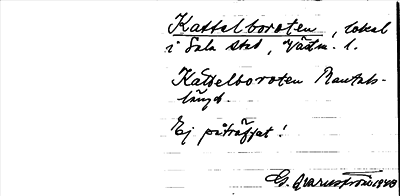 Kattelboroten, lokal
i Sala stad, Västm. l.
Kattelboroten Mantals-
längd.
Ej påträffat!
G. 1940